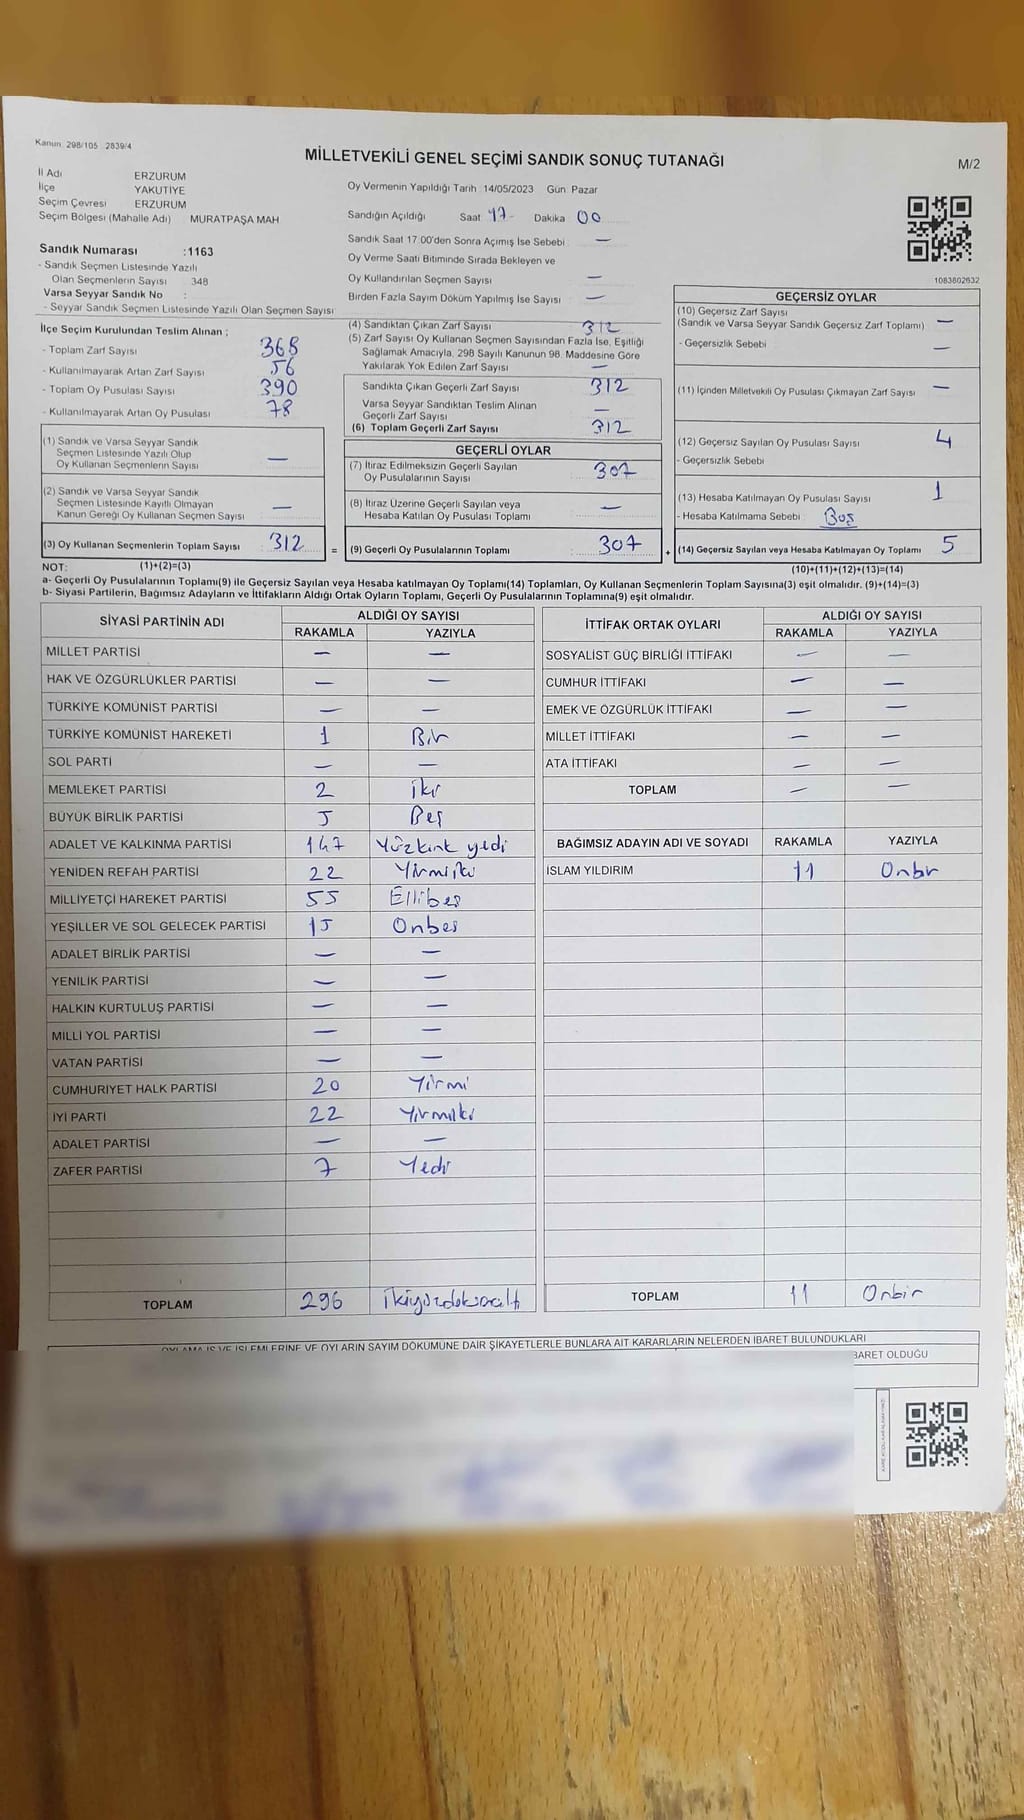 Kanun 298/105 2839/4
MİLLETVEKİLİ GENEL SEÇİMİ SANDIK SONUÇ TUTANAĞI
M/2
İl Adı ERZURUM
İlçe YAKUTİYE
Seçim Çevresi ERZURUM
Seçim Bölgesi (Mahalle Adı) MURATPAŞA MAH
Oy Vermenin Yapıldığı Tarih 14/05/2023 Gün Pazar
Sandığın Açıldığı Saat 17 Dakika 00
Sandık Saat 17:00'den Sonra Açımış İse Sebebi —
Oy Verme Saati Bitiminde Sırada Bekleyen ve
Oy Kullandırılan Seçmen Sayısı —
Birden Fazla Sayım Döküm Yapılmış İse Sayısı —
Sandık Numarası :1163
- Sandık Seçmen Listesinde Yazılı
Olan Seçmenlerin Sayısı 348
Varsa Seyyar Sandık No :
- Seyyar Sandık Seçmen Listesinde Yazılı Olan Seçmen Sayısı
1083802632
İlçe Seçim Kurulundan Teslim Alınan ;
- Toplam Zarf Sayısı 368
- Kullanılmayarak Artan Zarf Sayısı 56
- Toplam Oy Pusulası Sayısı 390
- Kullanılmayarak Artan Oy Pusulası 78
(1) Sandık ve Varsa Seyyar Sandık
Seçmen Listesinde Yazılı Olup
Oy Kullanan Seçmenlerin Sayısı —
(2) Sandık ve Varsa Seyyar Sandık
Seçmen Listesinde Kayıtlı Olmayan
Kanun Gereği Oy Kullanan Seçmen Sayısı —
(3) Oy Kullanan Seçmenlerin Toplam Sayısı 312 =
(4) Sandıktan Çıkan Zarf Sayısı 312
(5) Zarf Sayısı Oy Kullanan Seçmen Sayısından Fazla İse, Eşitliği
Sağlamak Amacıyla, 298 Sayılı Kanunun 98. Maddesine Göre
Yakılarak Yok Edilen Zarf Sayısı —
Sandıkta Çıkan Geçerli Zarf Sayısı 312
Varsa Seyyar Sandıktan Teslim Alınan
Geçerli Zarf Sayısı —
(6) Toplam Geçerli Zarf Sayısı 312
GEÇERLİ OYLAR
(7) İtiraz Edilmeksizin Geçerli Sayılan
Oy Pusulalarının Sayısı 307
(8) İtiraz Üzerine Geçerli Sayılan veya
Hesaba Katılan Oy Pusulası Toplamı —
(9) Geçerli Oy Pusulalarının Toplamı 307 +
GEÇERSİZ OYLAR
(10) Geçersiz Zarf Sayısı
(Sandık ve Varsa Seyyar Sandık Geçersiz Zarf Toplamı) —
- Geçersizlik Sebebi —
(11) İçinden Milletvekili Oy Pusulası Çıkmayan Zarf Sayısı —
(12) Geçersiz Sayılan Oy Pusulası Sayısı 4
- Geçersizlik Sebebi
(13) Hesaba Katılmayan Oy Pusulası Sayısı 1
- Hesaba Katılmama Sebebi Boş
(14) Geçersiz Sayılan veya Hesaba Katılmayan Oy Toplamı 5
NOT: (1)+(2)=(3) (10)+(11)+(12)+(13)=(14)
a- Geçerli Oy Pusulalarının Toplamı(9) ile Geçersiz Sayılan veya Hesaba katılmayan Oy Toplamı(14) Toplamları, Oy Kullanan Seçmenlerin Toplam Sayısına(3) eşit olmalıdır. (9)+(14)=(3)
b- Siyasi Partilerin, Bağımsız Adayların ve İttifakların Aldığı Ortak Oyların Toplamı, Geçerli Oy Pusulalarının Toplamına(9) eşit olmalıdır.
SİYASİ PARTİNİN ADI ALDIĞI OY SAYISI
RAKAMLA YAZIYLA
MİLLET PARTİSİ — —
HAK VE ÖZGÜRLÜKLER PARTİSİ — —
TÜRKİYE KOMÜNİST PARTİSİ — —
TÜRKİYE KOMÜNİST HAREKETİ 1 Bir
SOL PARTİ — —
MEMLEKET PARTİSİ 2 iki
BÜYÜK BİRLİK PARTİSİ 5 Beş
ADALET VE KALKINMA PARTİSİ 147 Yüzkırk yedi
YENİDEN REFAH PARTİSİ 22 Yirmiiki
MİLLİYETÇİ HAREKET PARTİSİ 55 Ellibeş
YEŞİLLER VE SOL GELECEK PARTİSİ 15 Onbeş
ADALET BİRLİK PARTİSİ — —
YENİLİK PARTİSİ — —
HALKIN KURTULUŞ PARTİSİ — —
MİLLİ YOL PARTİSİ — —
VATAN PARTİSİ — —
CUMHURİYET HALK PARTİSİ 20 Yirmi
İYİ PARTİ 22 Yirmiiki
ADALET PARTİSİ — —
ZAFER PARTİSİ 7 Yedi
TOPLAM 296 ikiyüzdoksanaltı
İTTİFAK ORTAK OYLARI ALDIĞI OY SAYISI
RAKAMLA YAZIYLA
SOSYALİST GÜÇ BİRLİĞİ İTTİFAKI — —
CUMHUR İTTİFAKI — —
EMEK VE ÖZGÜRLÜK İTTİFAKI — —
MİLLET İTTİFAKI — —
ATA İTTİFAKI — —
TOPLAM — —
BAĞIMSIZ ADAYIN ADI VE SOYADI RAKAMLA YAZIYLA
İSLAM YILDIRIM 11 Onbir
TOPLAM 11 Onbir
OYLAMA İŞ VE İŞLEMLERİNE VE OYLARIN SAYIM DÖKÜMÜNE DAİR ŞİKAYETLERLE BUNLARA AİT KARARLARIN NELERDEN İBARET BULUNDUKLARI
BARET OLDUĞU